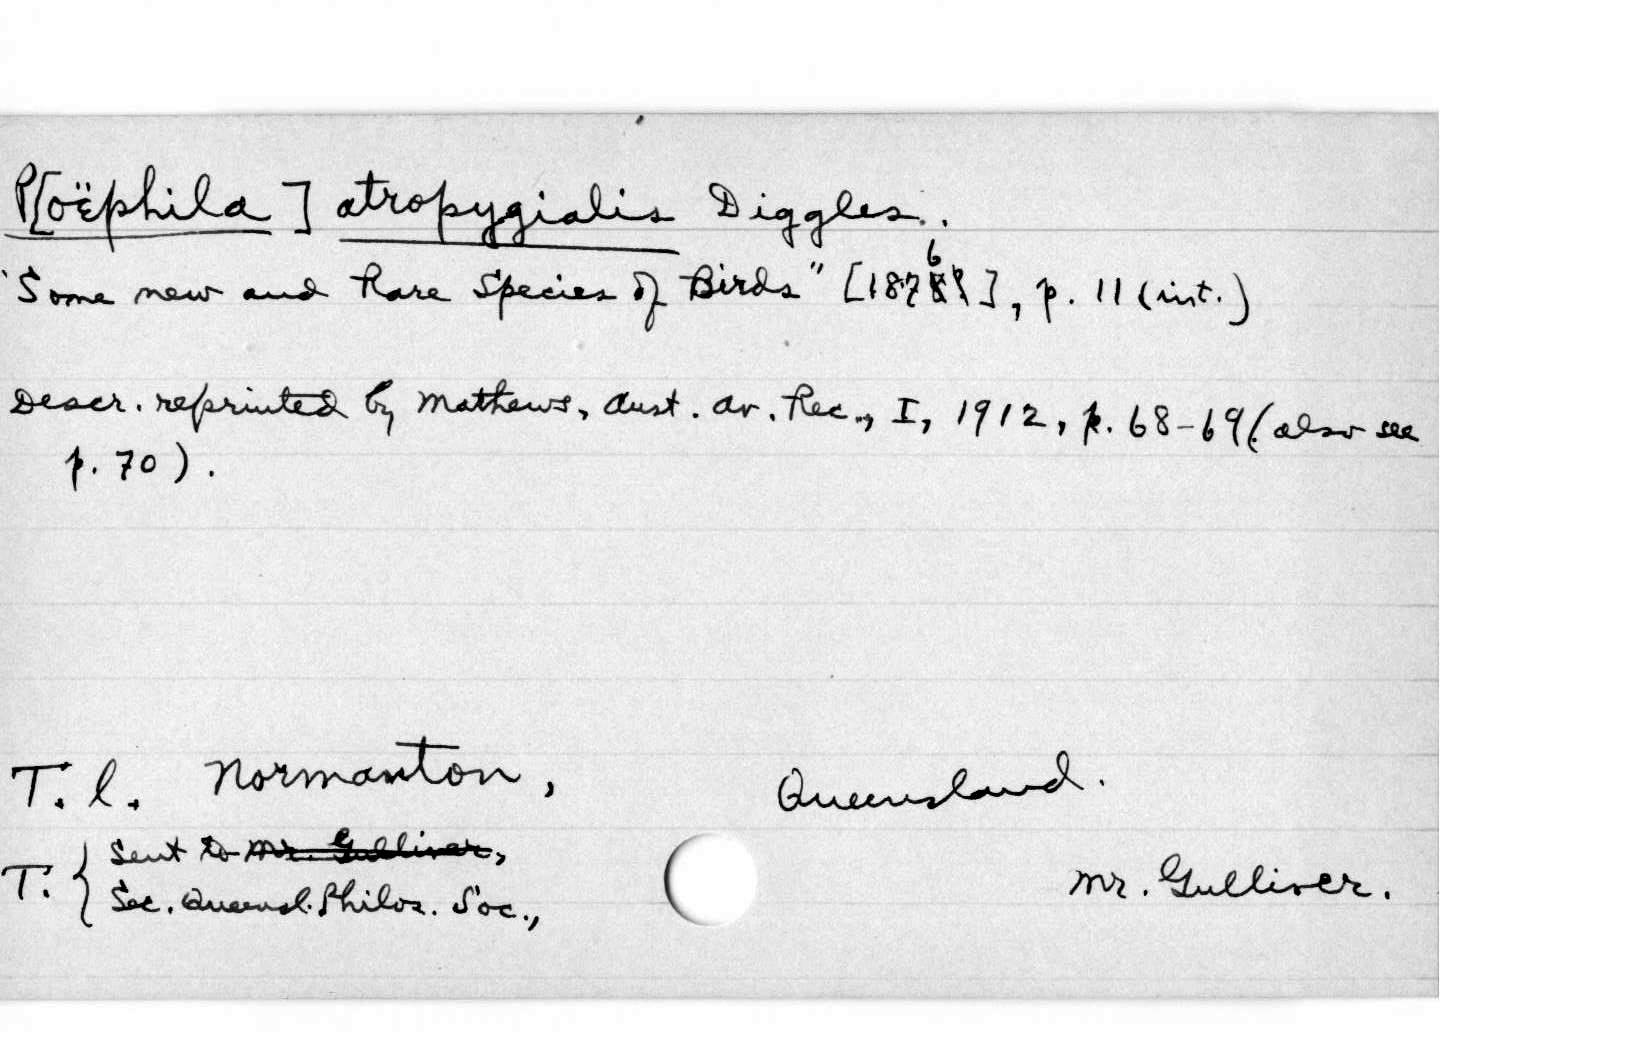 P[oëphila] atropygialis Diggles.
"Some new and Rare Species of Birds" [1876], p. 11 (int.)
Descr. reprinted by Mathews, Aust. Av. Rec., I, 1912, p. 68-69 (also see
p. 70).
T. l. Normanton, Queensland.
T. { Sent to Mr. Gulliver,
Sec. Queensl. Philos. Soc., Mr. Gulliver.